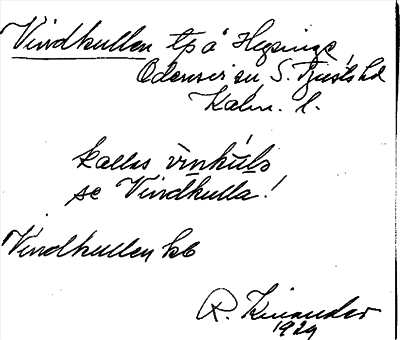 Vindkullen tp å Hysinge,
Odensvi sn, S. Tjusts hd
Kalm. l.
kallas vinkúls
se Vindkulla!
Vindkullen kb
R. Kinander
1929